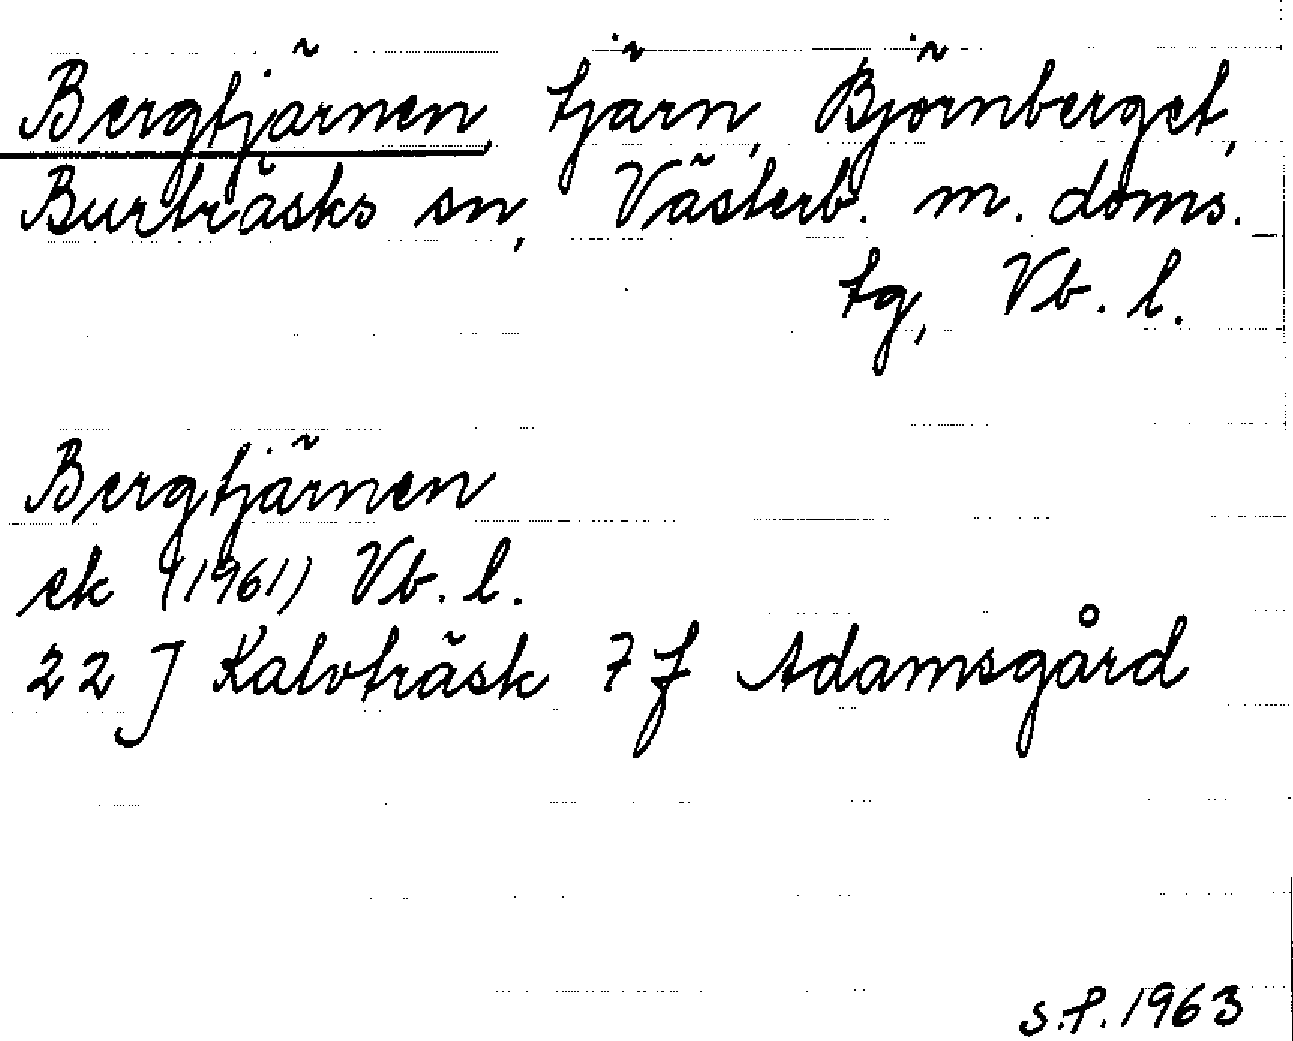 Bergtjärnen, tjärn, Björnberget,
Burträsks sn, Västerb. m. doms.
tg, Vb. l.
Bergtjärnen
ek (1961) Vb. l.
22 J Kalvträsk 7 f Adamsgård
S.P. 1963